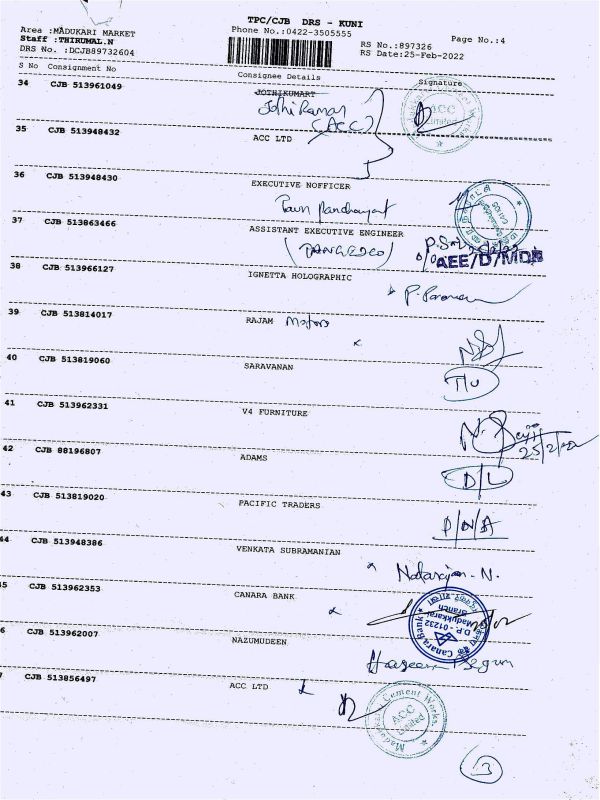 TPC/CJB DRS - KUNI
Area :MADUKARI MARKET
Phone No.:0422-3505555
Page No.:4
Staff :THIRUMAL.N
RS No.:897326
DRS No. :DCJB89732604
RS Date:25-Feb-2022
S No Consignment No Consignee Details Signature
34 CJB 513961049 JOTHIKUMART
Jothi Kumar
(ACC)
ACC Limited
35 CJB 513948432 ACC LTD
36 CJB 513948430 EXECUTIVE NOFFICER
Town Panchayat
37 CJB 513863466 ASSISTANT EXECUTIVE ENGINEER
(TANGEDCO)
AEE/D/MDK
38 CJB 513966127 IGNETTA HOLOGRAPHIC
39 CJB 513814017 RAJAM Motors
40 CJB 513819060 SARAVANAN
41 CJB 513962331 V4 FURNITURE
25/2/22
42 CJB 88196807 ADAMS
D/L
43 CJB 513819020 PACIFIC TRADERS
P/N/A
44 CJB 513948386 VENKATA SUBRAMANIAN
Natarajan. N.
45 CJB 513962353 CANARA BANK
Canara Bank
D.P.-01232
Madukkarai
Branch
6 CJB 513962007 NAZUMUDEEN
Haseena Begum
7 CJB 513856497 ACC LTD
Madukkarai Cement Works
ACC Limited
3